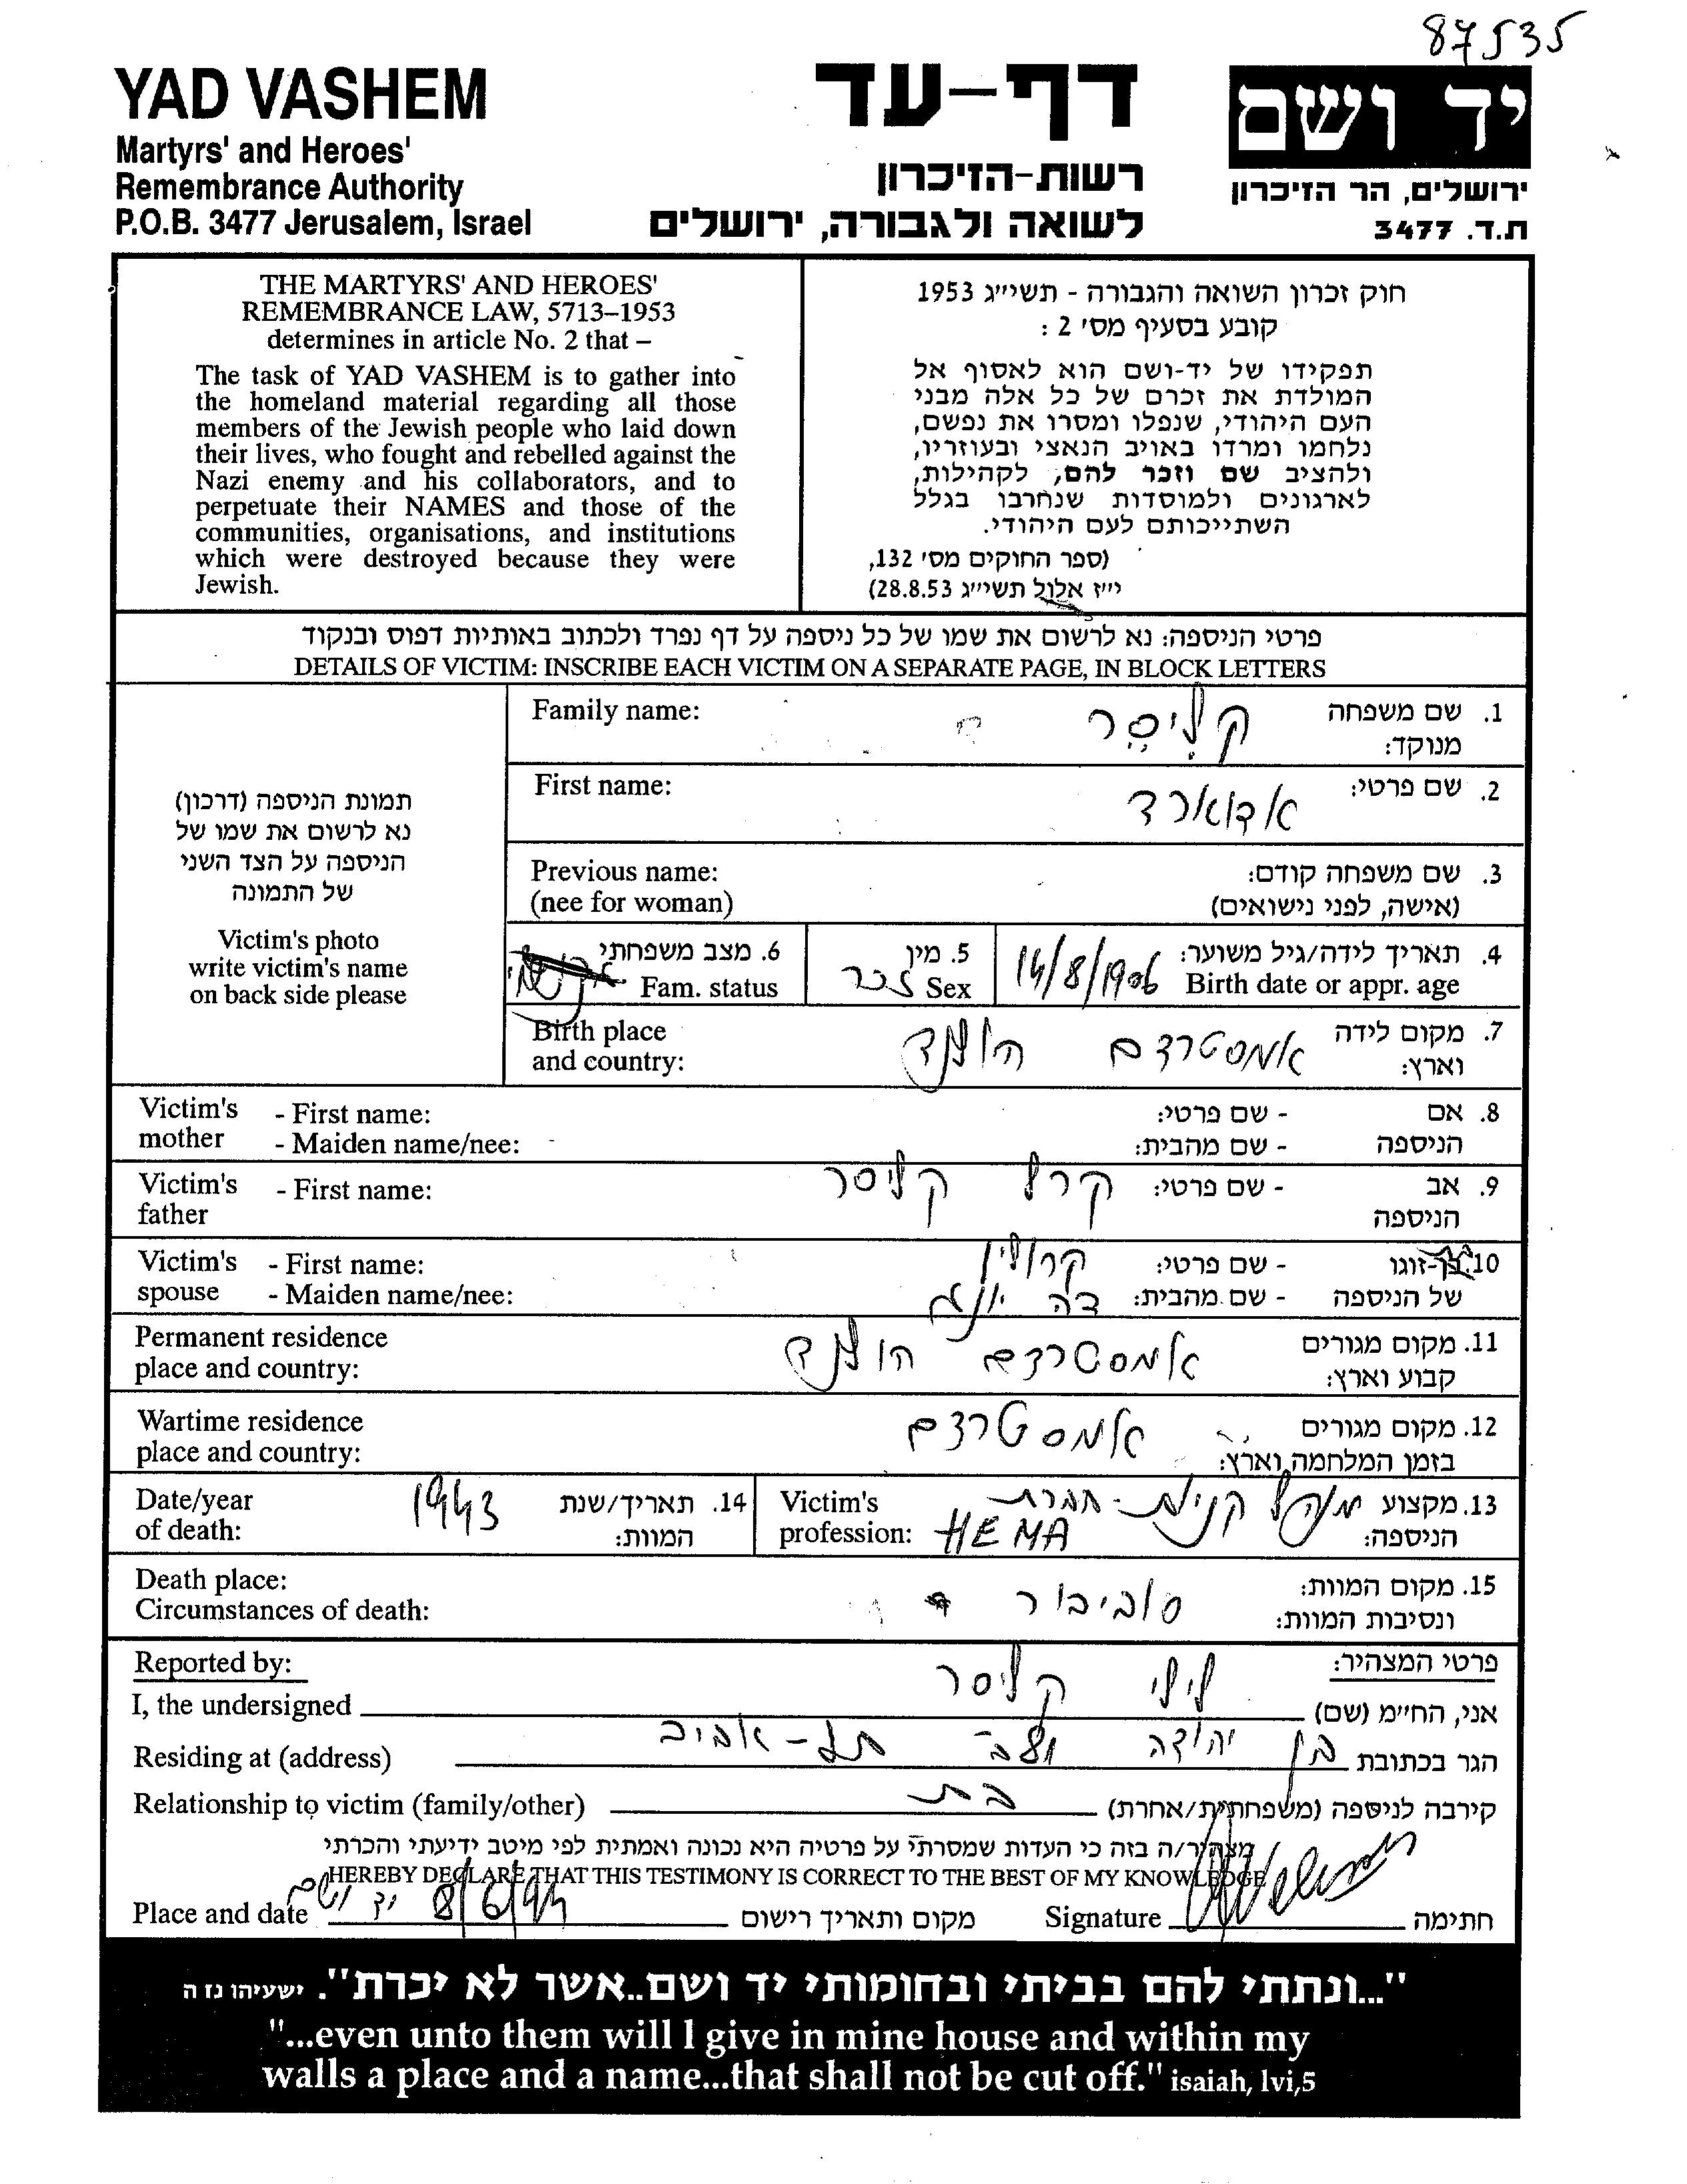 87535
YAD VASHEM
Martyrs' and Heroes'
Remembrance Authority
P.O.B. 3477 Jerusalem, Israel
דף-עד
רשות-הזיכרון
לשואה ולגבורה, ירושלים
יד ושם
ירושלים, הר הזיכרון
ת.ד. 3477
THE MARTYRS' AND HEROES'
REMEMBRANCE LAW, 5713–1953
determines in article No. 2 that –
The task of YAD VASHEM is to gather into
the homeland material regarding all those
members of the Jewish people who laid down
their lives, who fought and rebelled against the
Nazi enemy and his collaborators, and to
perpetuate their NAMES and those of the
communities, organisations, and institutions
which were destroyed because they were
Jewish.
חוק זכרון השואה והגבורה - תשי״ג 1953
קובע בסעיף מס׳ 2 :
תפקידו של יד-ושם הוא לאסוף אל
המולדת את זכרם של כל אלה מבני
העם היהודי, שנפלו ומסרו את נפשם,
נלחמו ומרדו באויב הנאצי ובעוזריו,
ולהציב שם וזכר להם, לקהילות,
לארגונים ולמוסדות שנחרבו בגלל
השתייכותם לעם היהודי.
(ספר החוקים מס׳ 132,
י״ז אלול תשי״ג 28.8.53)
פרטי הניספה: נא לרשום את שמו של כל ניספה על דף נפרד ולכתוב באותיות דפוס ובנקוד
DETAILS OF VICTIM: INSCRIBE EACH VICTIM ON A SEPARATE PAGE, IN BLOCK LETTERS
תמונת הניספה (דרכון)
נא לרשום את שמו של
הניספה על הצד השני
של התמונה
Victim's photo
write victim's name
on back side please
Family name: קליסר 1. שם משפחה
מנוקד:
First name: אדוארד 2. שם פרטי:
Previous name: 3. שם משפחה קודם:
(nee for woman) (אישה, לפני נישואים)
6. מצב משפחתי 5. מין 4. תאריך לידה/גיל משוער:
Fam. status זכר Sex 14/8/1906 Birth date or appr. age
Birth place אמסטרדם הולנד 7. מקום לידה
and country: וארץ:
Victim's - First name: - שם פרטי: 8. אם
mother - Maiden name/nee: - שם מהבית: הניספה
Victim's - First name: קרל קליסר - שם פרטי: 9. אב
father הניספה
Victim's - First name: קרולין - שם פרטי: 10. בן-זוגו
spouse - Maiden name/nee: דה יונג - שם מהבית: של הניספה
Permanent residence אמסטרדם הולנד 11. מקום מגורים
place and country: קבוע וארץ:
Wartime residence אמסטרדם 12. מקום מגורים
place and country: בזמן המלחמה וארץ:
Date/year 1943 14. תאריך/שנת Victim's מנהל קניות - חברת 13. מקצוע
of death: המוות: profession: HEMA הניספה:
Death place: סוביבור 15. מקום המוות:
Circumstances of death: ונסיבות המוות:
Reported by: פרטי המצהיר:
I, the undersigned לילי קליסר אני, החי״מ (שם)
Residing at (address) בן יהודה תל-אביב הגר בכתובת
Relationship to victim (family/other) בת קירבה לניספה (משפחתית/אחרת)
מצהיר/ה בזה כי העדות שמסרתי על פרטיה היא נכונה ואמתית לפי מיטב ידיעתי והכרתי
HEREBY DECLARE THAT THIS TESTIMONY IS CORRECT TO THE BEST OF MY KNOWLEDGE
Place and date 8/6/94 יד ושם מקום ותאריך רישום Signature חתימה
"...ונתתי להם בביתי ובחומותי יד ושם..אשר לא יכרת". ישעיהו נז ה
"...even unto them will I give in mine house and within my
walls a place and a name...that shall not be cut off." isaiah, lvi,5